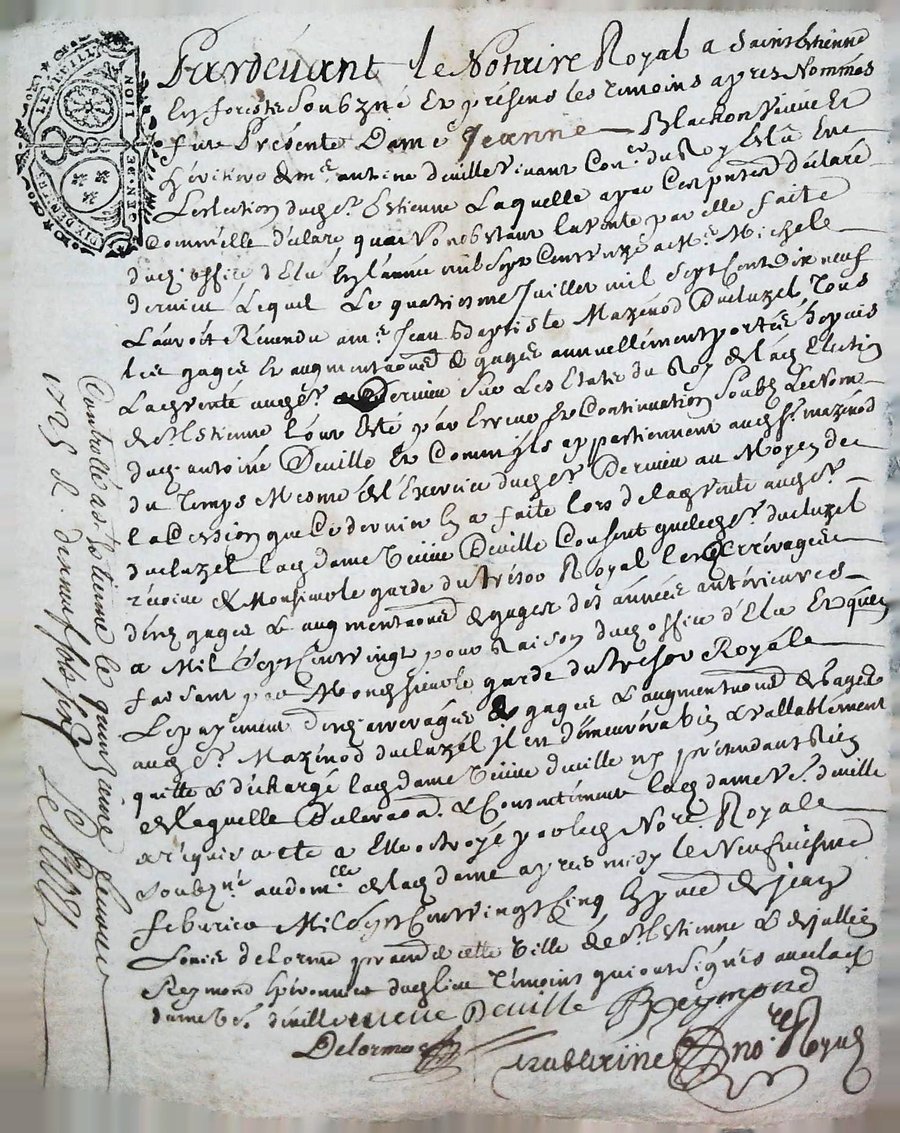 LE FEUILLE
DIX DEN TRE
GEN. LION
Pardevant le Notaire Royal a Saint Estienne
En forestz Soubzné Et présens les temoins apres Nommés
fut Présente Dame Jeanne Blachon Veuve Et
héritière de me. antoine deuille Vivant Conr. du Roy Eslû En
Leslection dud. St. Estienne Laquelle avec Ces présen déclaré
Comm'elle déclare, que Nonobstant la vente par elle faite
dud. office d'Elû En l'année mil sept Cent a Me. Michele
dernieu, Lequel Le quatriesme Juillet mil sept Cent Dix neuf
L'auroit Revendu a me. Jean Baptiste Mazenod Ducluzel, Tous
les gages Et augmentaons de gages annuellement portés depuis
Lad. vente aud. Sr. Dernieu Sur Les Etats du Roy de lad. Election
de St. Estienne l'ont Esté par Erreur Et Continuation Soubz Le Nom
dud. antoine Deuille Et Comm'ils appartiennent aud. Sr. mazenod
du Temps Mesme de l'Exercice dud. Sr. Dernieu au Moyen de
la Cession que Ce dernier En a faite lors de lad. vente aud. Sr.
ducluzel lad. dame Veuve Deuille Consent que led. Sr. ducluzel
reçoive de Monsieur le garde du Trésor Royal les Arrérages
desd. gages & augmentaons de gages des années antérieures
a Mil Sept Cent vingt pour Raison dud. office d'Elû Et qu'en
faisant par Monseieur le garde du trésor Royale
Le payement desd. arrerages de gages & augmentaons de gages
aud. Sr. Mazenod ducluzel, Il en démeurera bien & vallablement
quitte & déchargé lad. dame Veuve deuille n'y prétendant Rien
de laquelle Déclaraon. & Consentement lad. dame Ve. deuille
a réquis acte a Elle octroyé par led. Notre. Royale
Soubzné. au domlle. de lad. dame apres midy le Neufviesme
febvrier Mil Sept Cent vingt Cinq En pnce de Jean
Louis delorme pratn de cette Ville de St. Estienne & de Jullien
Reymond Eperonnier dud. lieu Temoins qui ont Signés avec lad.
dame Ve. deuille veuve Deuille Reymond
Delorme no. Royal
Controllé a St. Estienne le quinzaine feuvrier
1725 R. dix neuf sols six